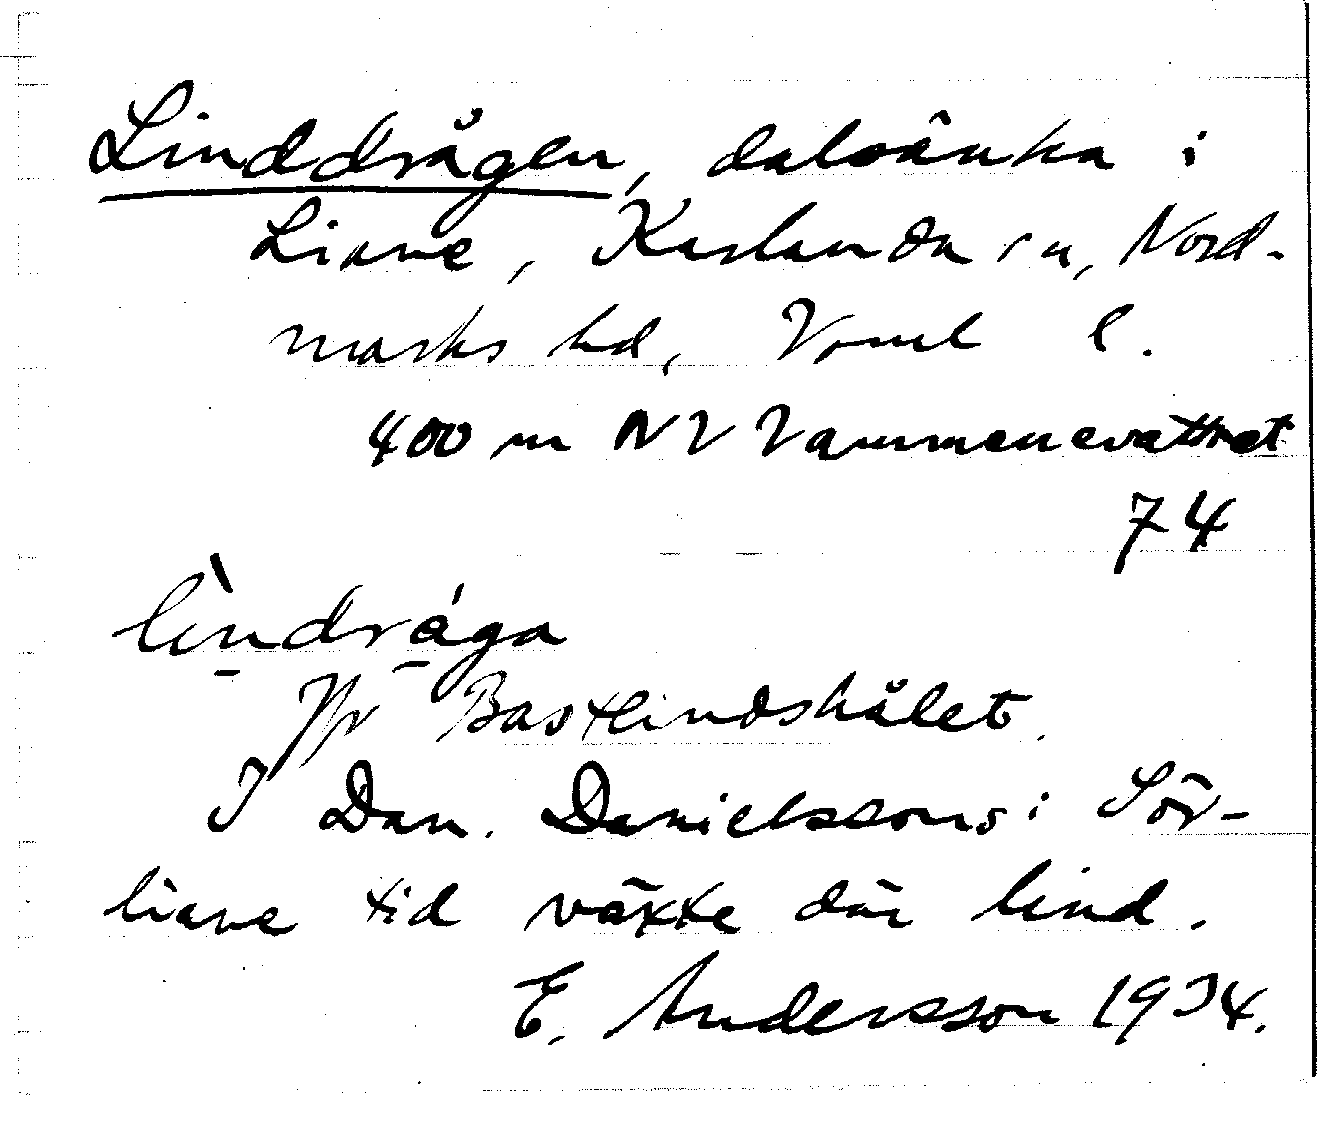 Linddrågen, dalsänka i
Liane, Karlanda sn, Nord-
marks hd, Värml l.
400 m NV Vammenevattnet
74
lìndrága
Jfr Bastlindshålet.
I Dan. Danielssons i Sör-
liane tid växte där lind.
E. Andersson 1934.